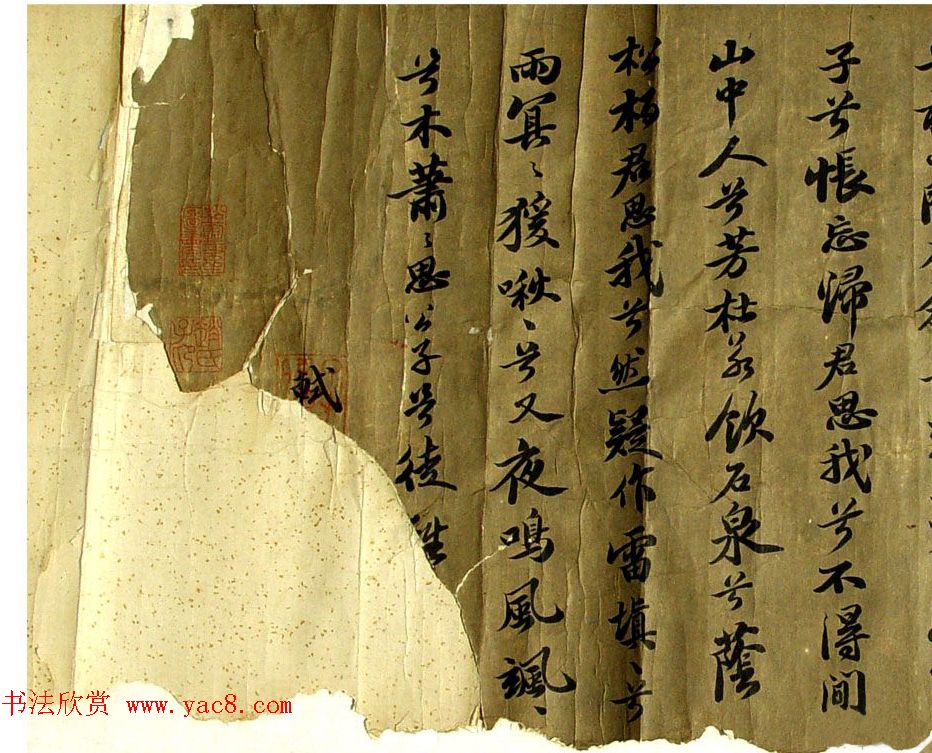 子兮悵忘歸君思我兮不得間
山中人兮芳杜若飲石泉兮蔭
松柏君思我兮然疑作雷填〻兮
雨冥〻猨啾〻兮又夜鳴風颯〻
兮木蕭〻思公子兮徒
軾
书法欣赏 www.yac8.com